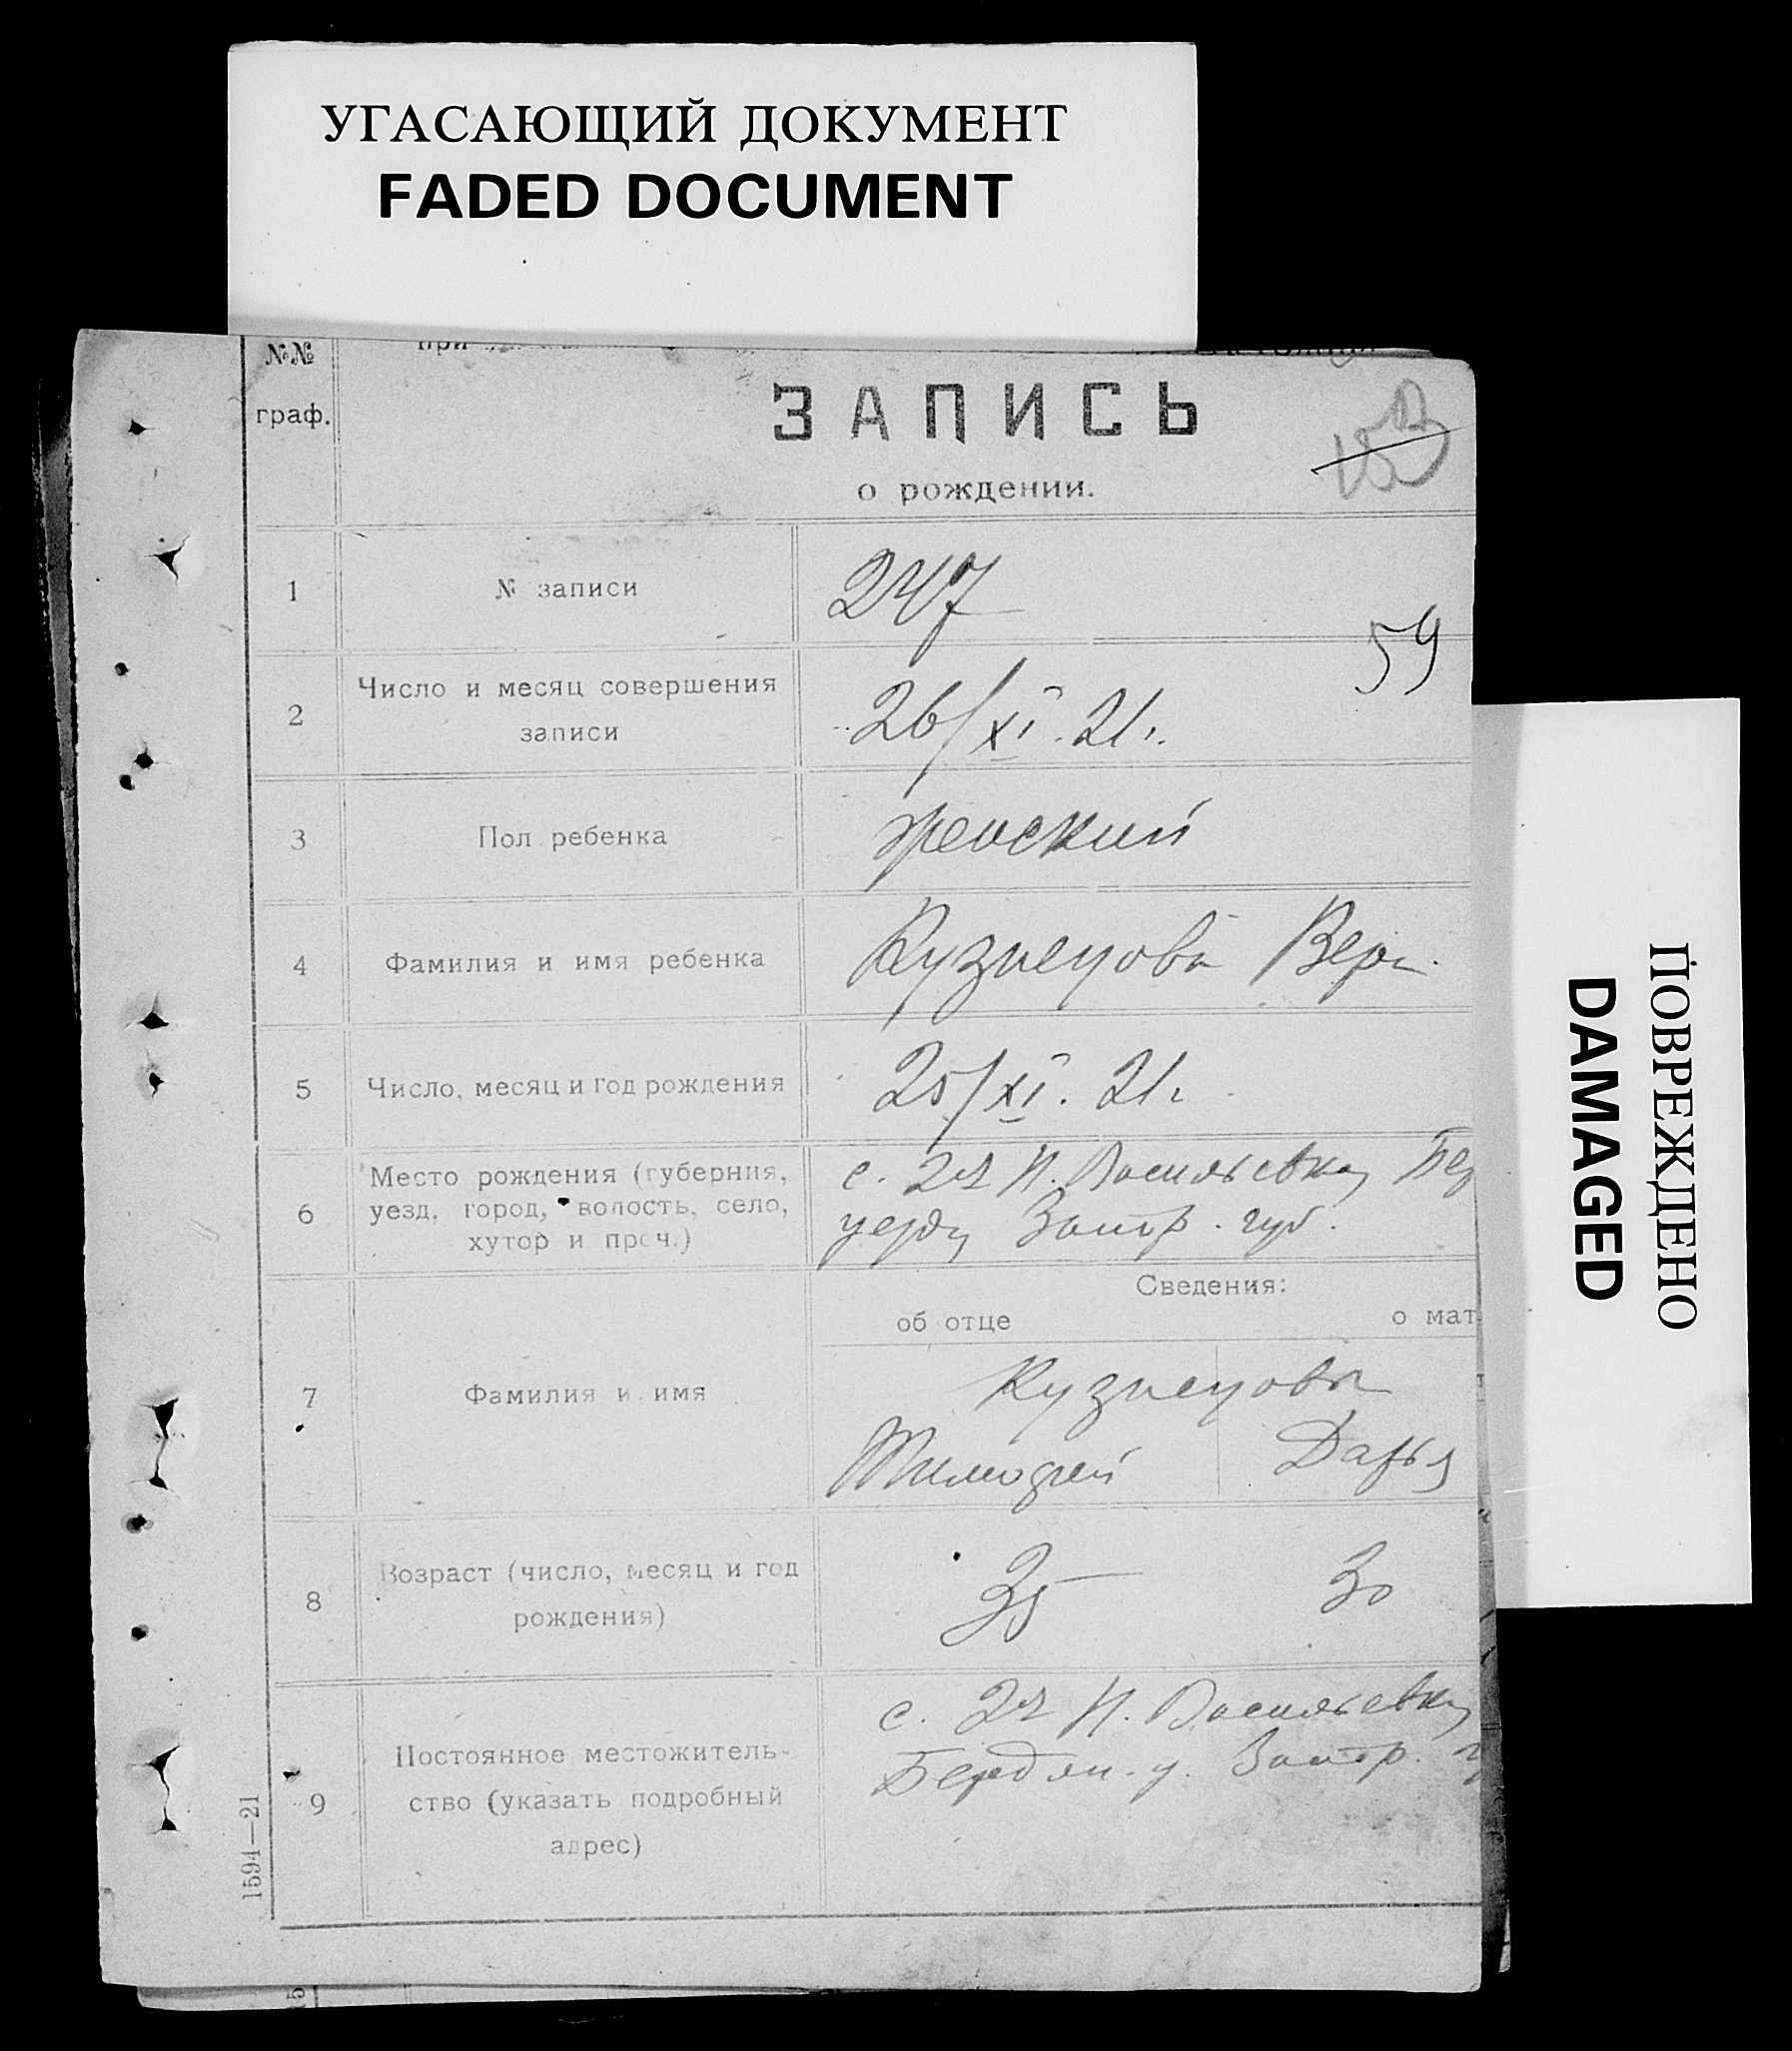 УГАСАЮЩИЙ ДОКУМЕНТ
FADED DOCUMENT
№№ граф.
при
ЗАПИСЬ
о рождении.
1 № записи 247
59
2 Число и месяц совершения записи 26/XI. 21 г.
3 Пол ребенка женский
4 Фамилия и имя ребенка Кузнецова Вера
5 Число, месяц и год рождения 25/XI. 21 г
6 Место рождения (губерния, уезд, город, волость, село, хутор и проч.)
с. 2е Н. Васильевка Бер
уезд Запор. губ.
Сведения:
об отце о мат
7 Фамилия и имя Кузнецовы
Тимофей Дарья
8 Возраст (число, месяц и год рождения) 35 30
9 Постоянное местожитель-
ство (указать подробный
адрес)
с. 2е Н. Васильевка
Бердян. у. Запор. г
1594—21
ПОВРЕЖДЕНО
DAMAGED